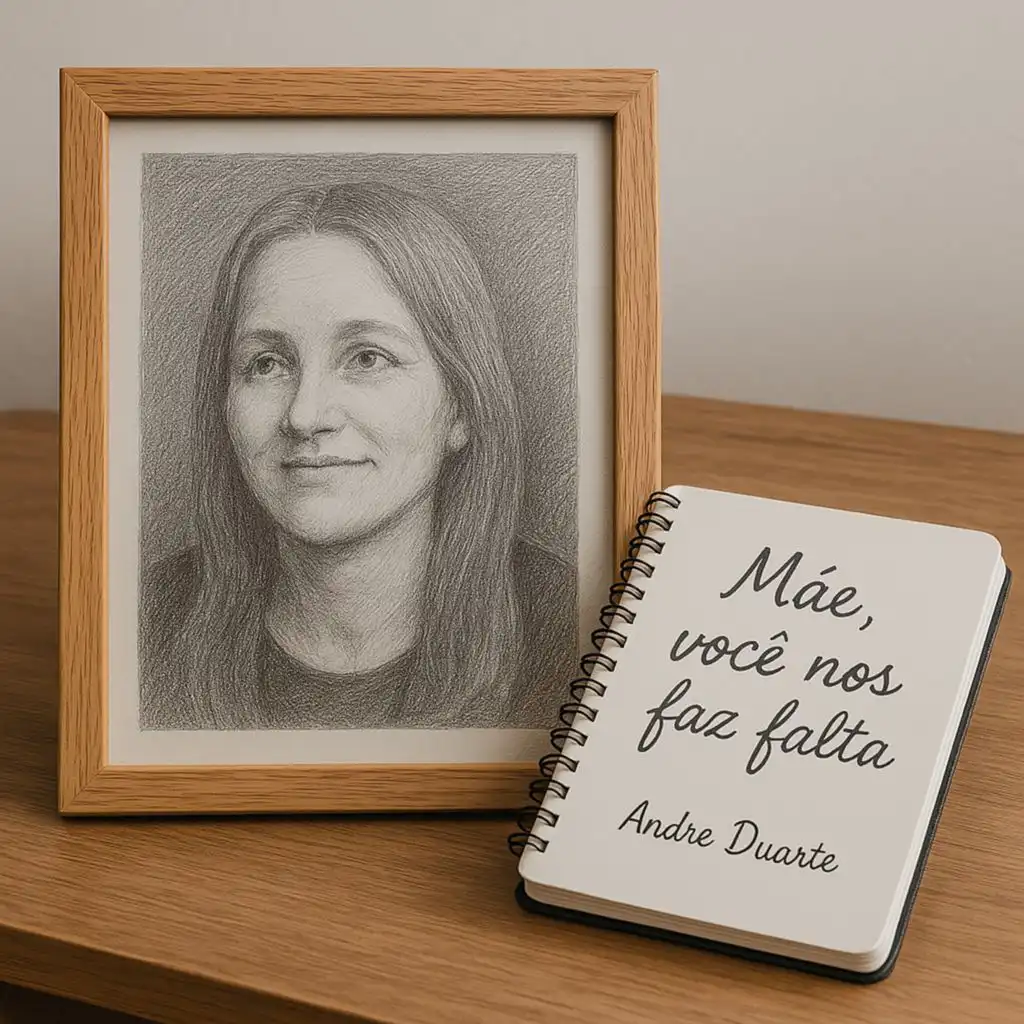 Máe,
você nos
faz falta
Andre Duarte